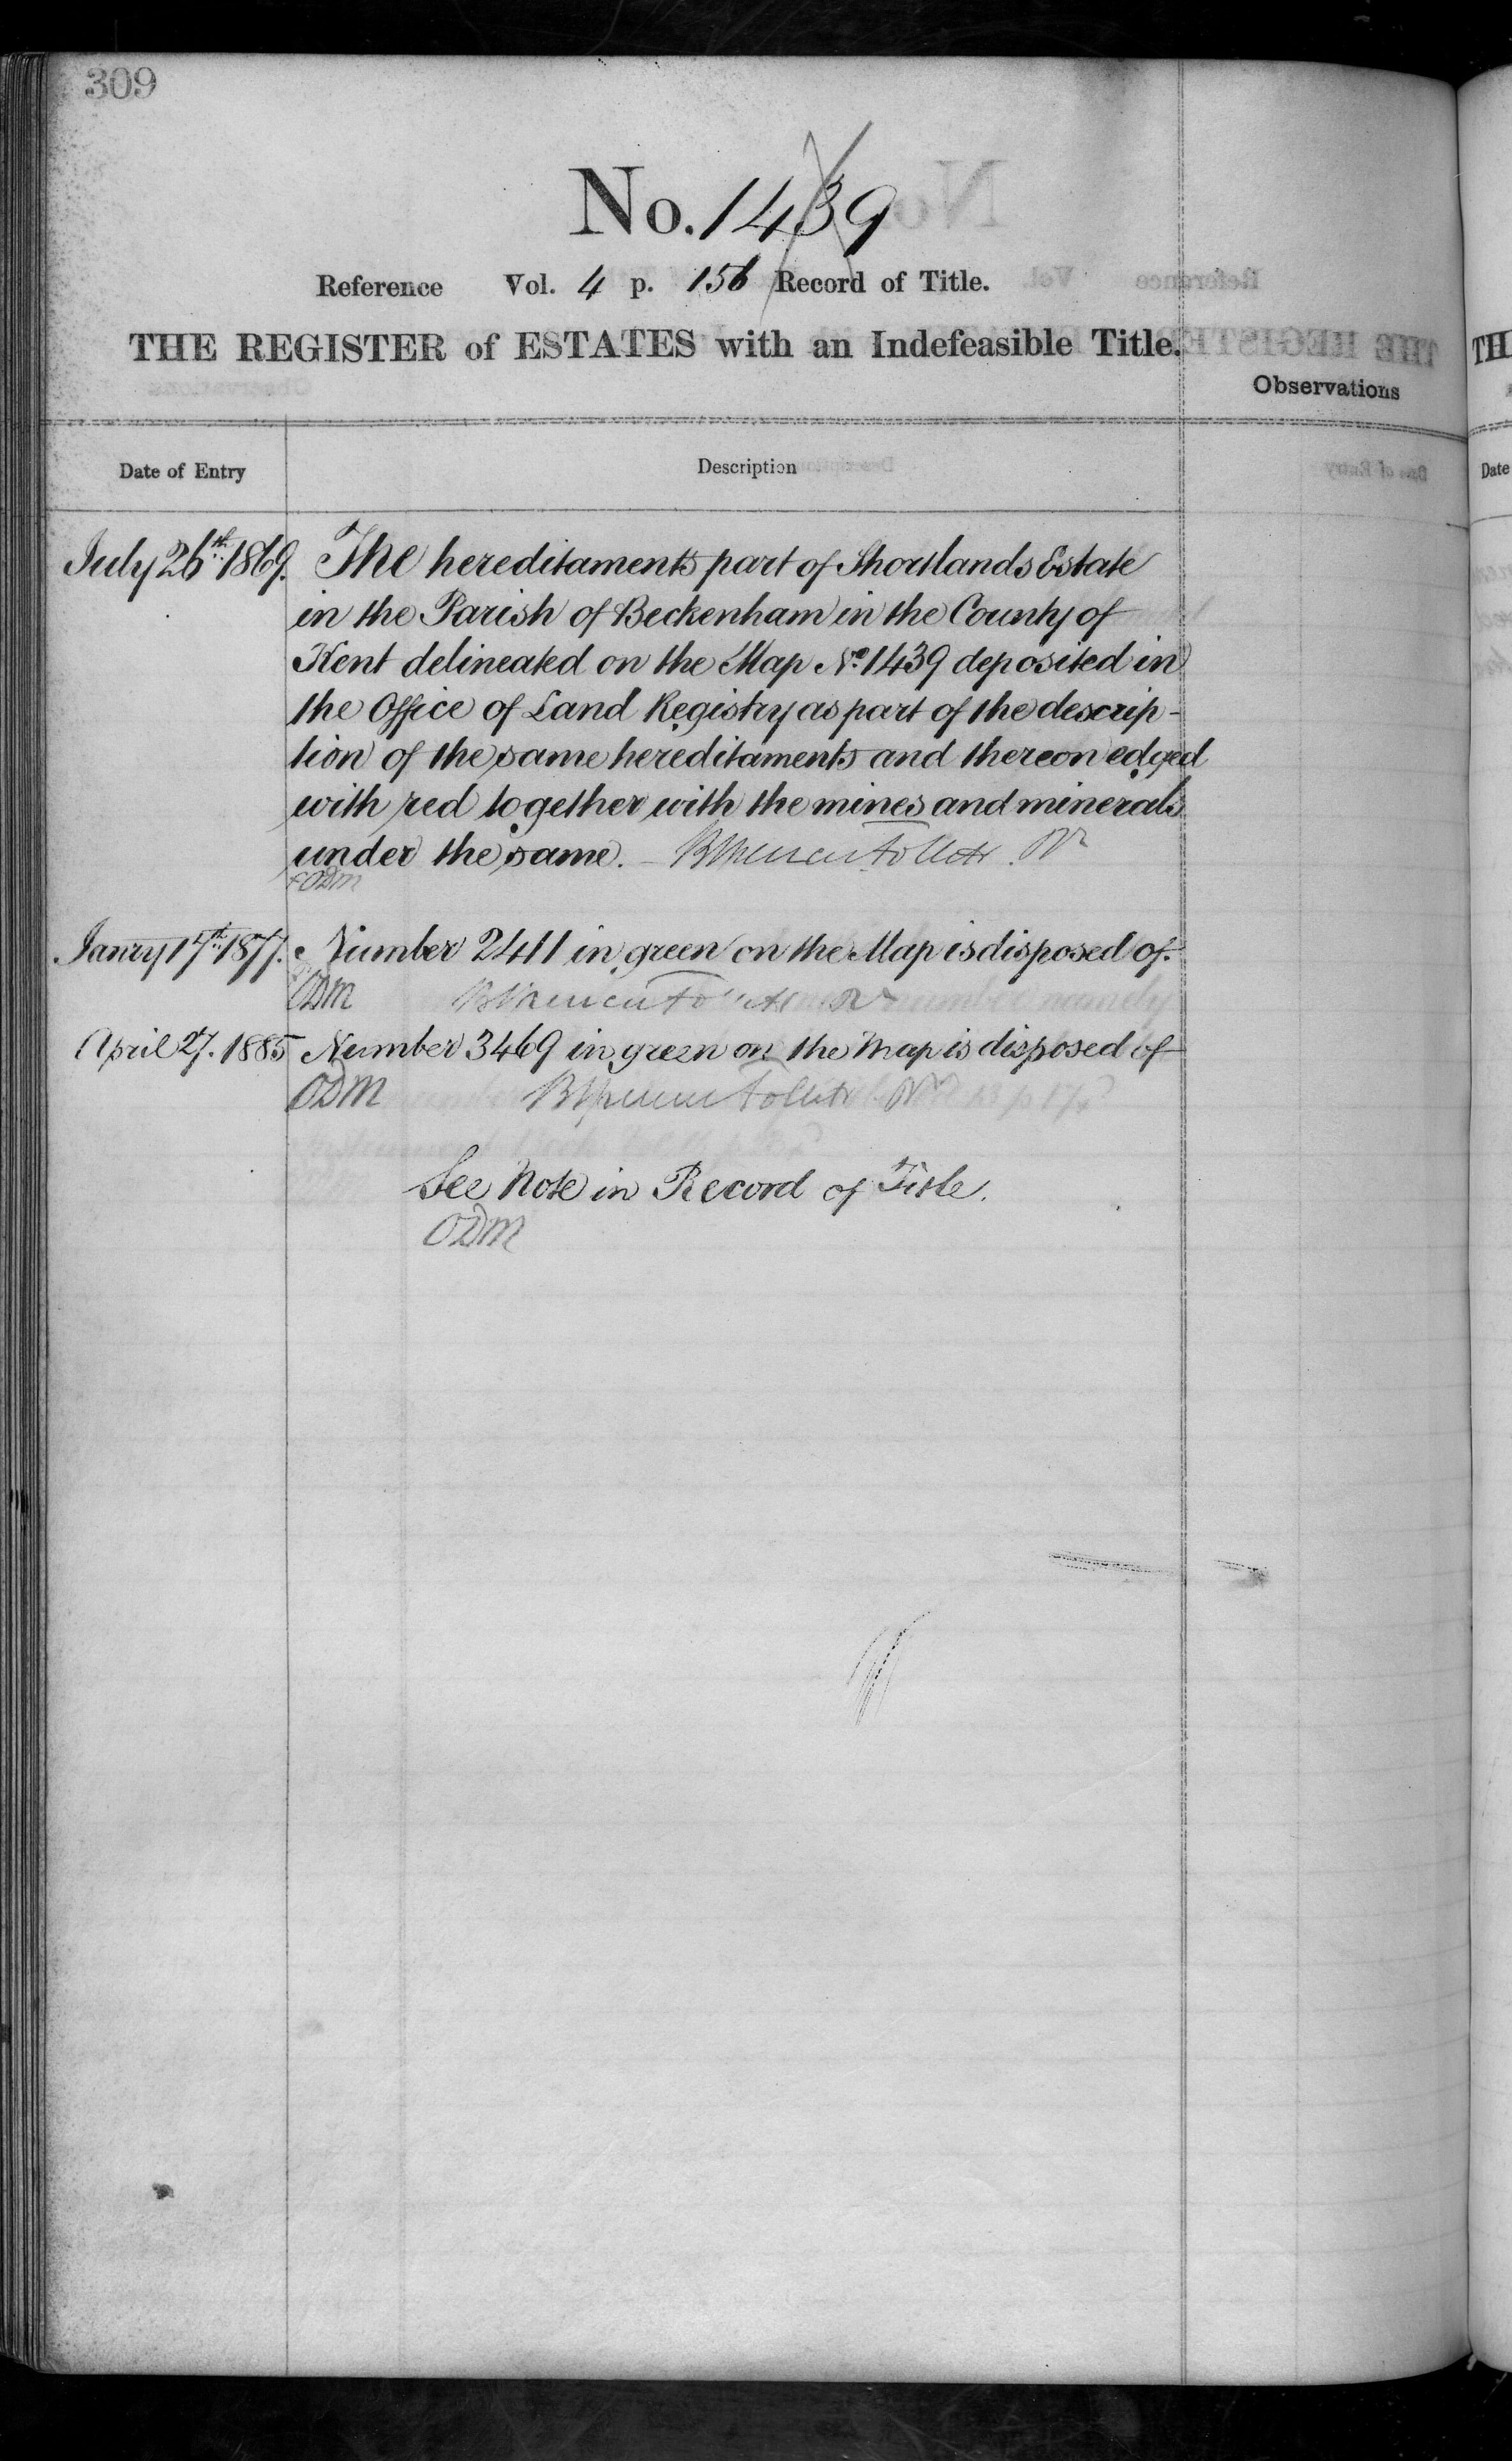 309
No. 1439
Reference Vol. 4 p. 156 Record of Title.
THE REGISTER of ESTATES with an Indefeasible Title.
Observations
Date of Entry Description
July 26th 1869. The hereditaments part of Shortlands Estate
in the Parish of Beckenham in the County of
Kent delineated on the Map No. 1439 deposited in
the Office of Land Registry as part of the descrip-
tion of the same hereditaments and thereon edged
with red together with the mines and minerals
under the same.
ODM
Janry 17th 1877. Number 2411 in green on the Map is disposed of.
ODM
April 27. 1885 Number 3469 in green on the Map is disposed of
ODM
See Note in Record of Title.
ODM
TH
Date